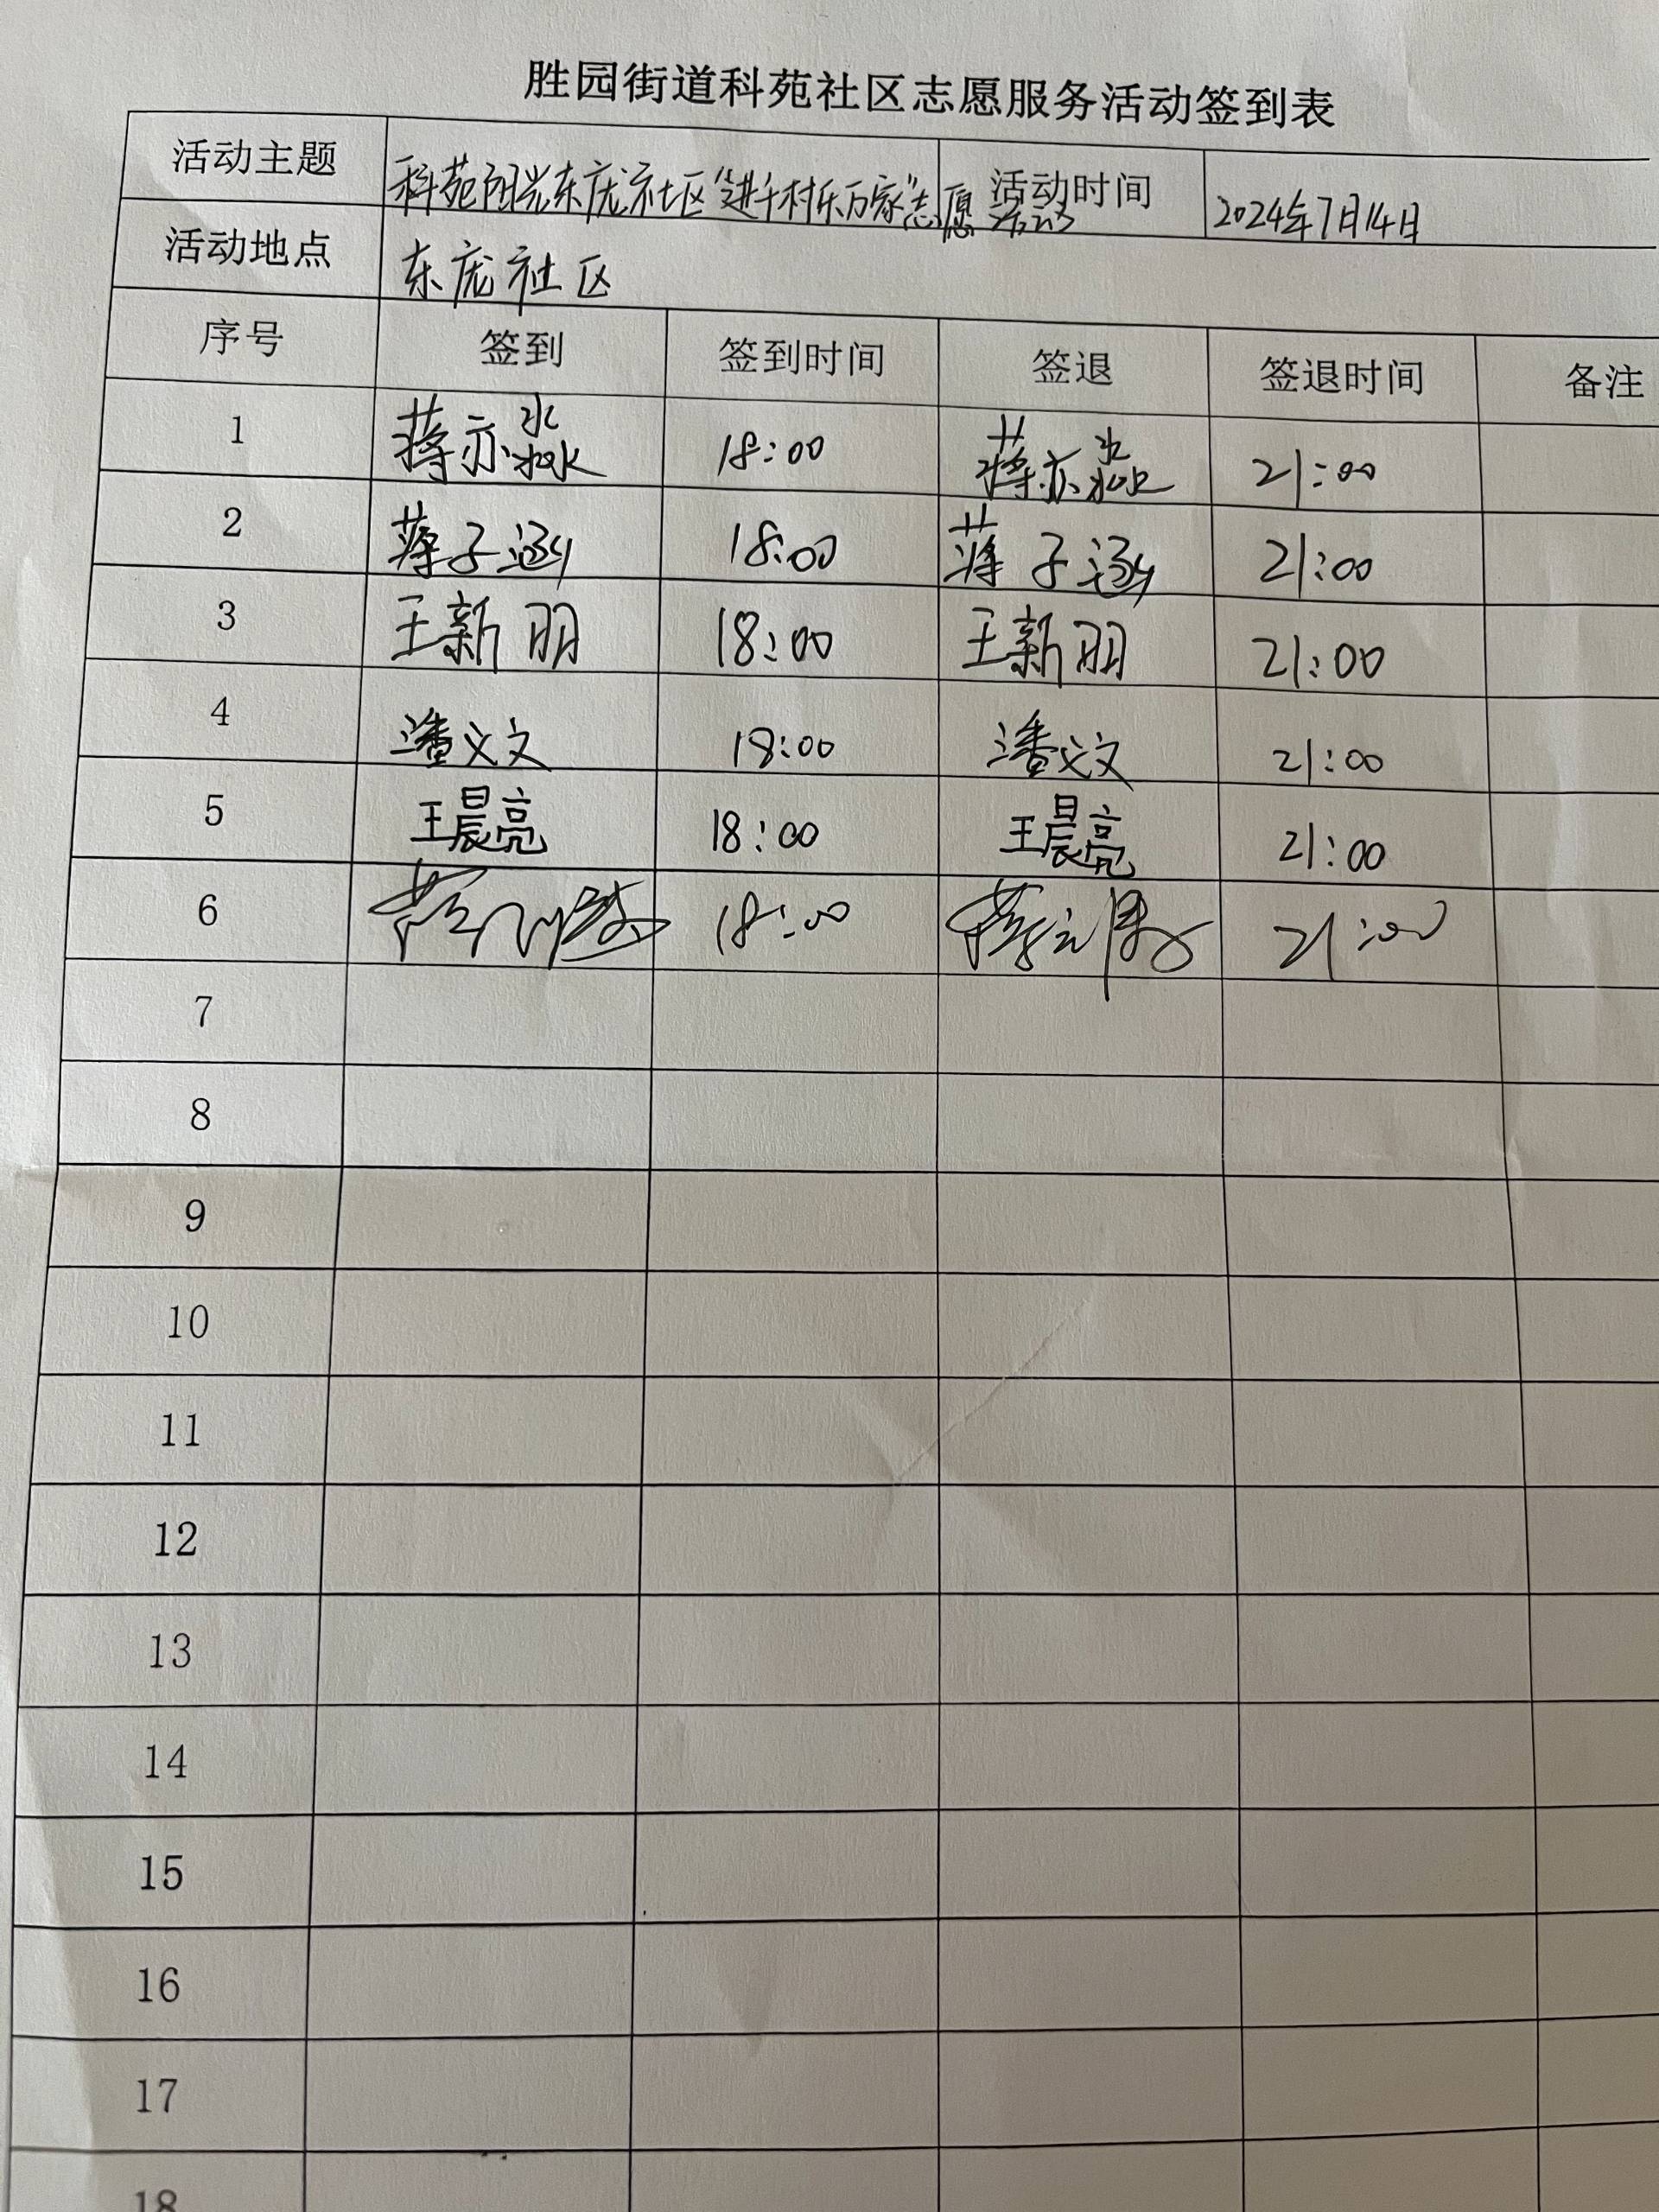 胜园街道科苑社区志愿服务活动签到表
活动主题 科苑阳光东庞社区“进千村乐万家”志愿活动 活动时间 2024年7月14日
活动地点 东庞社区
序号 签到 签到时间 签退 签退时间 备注
1 蒋亦淼 18:00 蒋亦淼 21:00
2 蒋子涵 18:00 蒋子涵 21:00
3 王新丽 18:00 王新丽 21:00
4 潘义文 18:00 潘义文 21:00
5 王晨亮 18:00 王晨亮 21:00
6 18:00 21:00
7
8
9
10
11
12
13
14
15
16
17
18